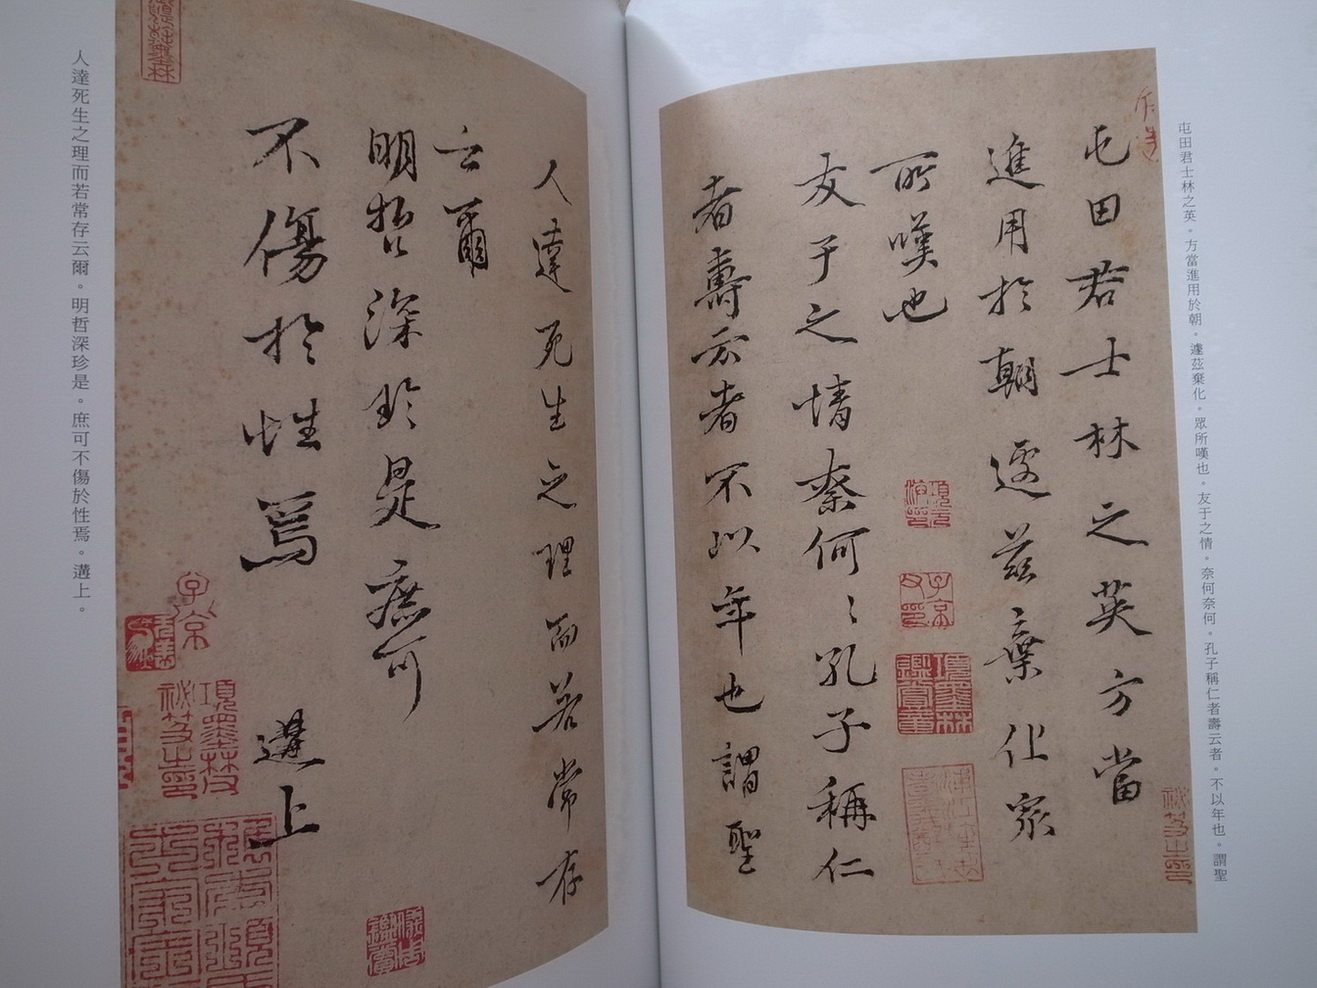 屯田君士林之英。方當進用於朝。遽茲棄化。眾所嘆也。友于之情。奈何奈何。孔子稱仁者壽云者。不以年也。謂聖
屯田君士林之英方當
進用於朝遽茲棄化眾
所嘆也
友于之情奈何〻孔子稱仁
者壽云者不以年也謂聖
人達死生之理而若常存
云爾
明哲深珍是庶可
不傷於性焉 遘上
人達死生之理而若常存云爾。明哲深珍是。庶可不傷於性焉。遘上。
子京
項墨林